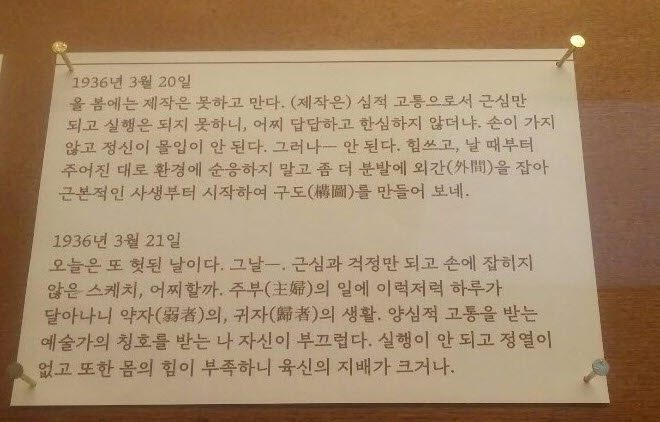 1936년 3월 20일
올 봄에는 제작은 못하고 만다. (제작은) 심적 고통으로서 근심만
되고 실행은 되지 못하니, 어찌 답답하고 한심하지 않더냐. 손이 가지
않고 정신이 몰입이 안 된다. 그러나— 안 된다. 힘쓰고, 날 때부터
주어진 대로 환경에 순응하지 말고 좀 더 분발에 외간(外間)을 잡아
근본적인 사생부터 시작하여 구도(構圖)를 만들어 보네.
1936년 3월 21일
오늘은 또 헛된 날이다. 그날—. 근심과 걱정만 되고 손에 잡히지
않은 스케치, 어찌할까. 주부(主婦)의 일에 이럭저럭 하루가
달아나니 약자(弱者)의, 귀자(歸者)의 생활. 양심적 고통을 받는
예술가의 칭호를 받는 나 자신이 부끄럽다. 실행이 안 되고 정열이
없고 또한 몸의 힘이 부족하니 육신의 지배가 크거나.